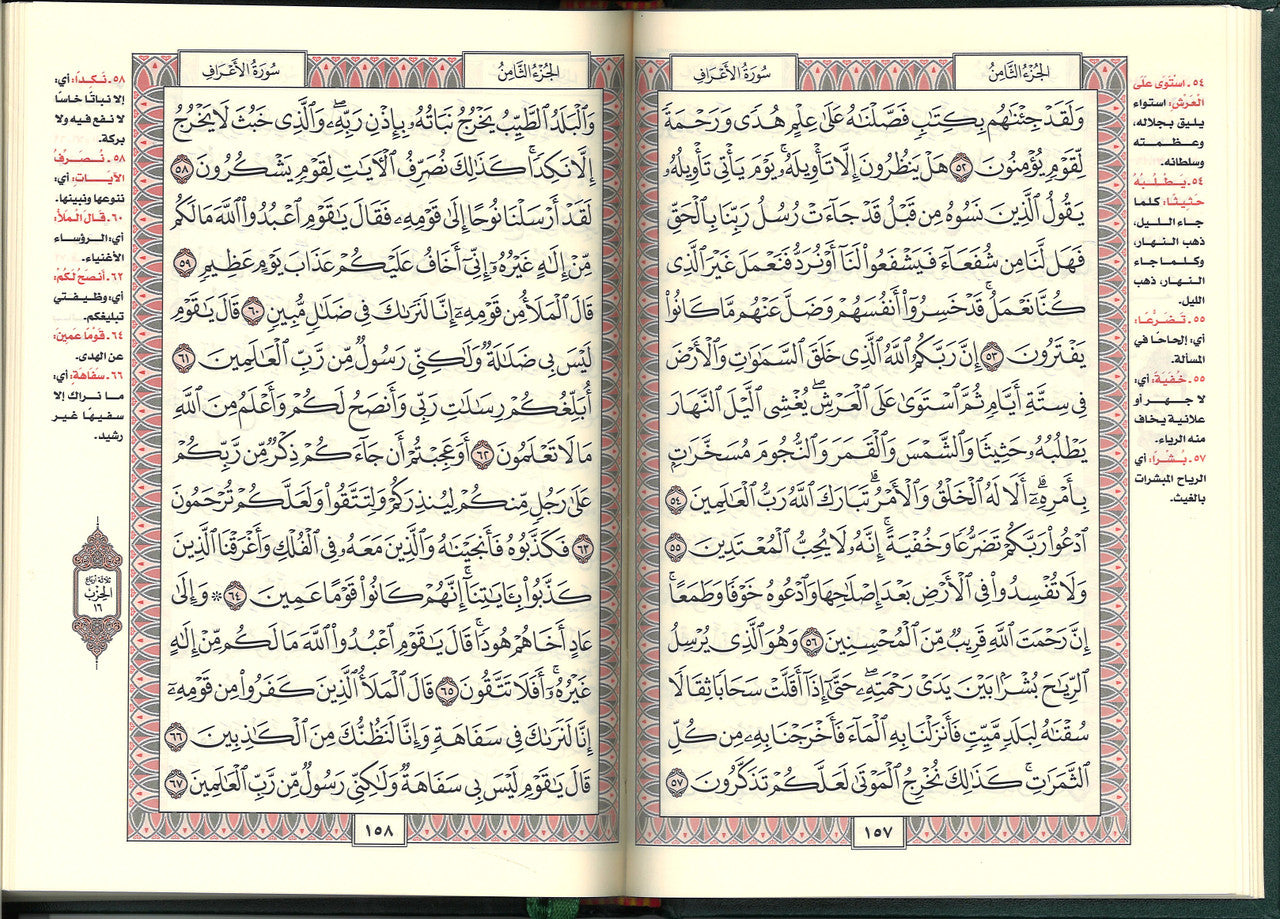 الجزء الثامن
سورة الأعراف
وَلَقَدْ جِئْنَٰهُم بِكِتَٰبٍ فَصَّلْنَٰهُ عَلَىٰ عِلْمٍ هُدًى وَرَحْمَةً
لِّقَوْمٍ يُؤْمِنُونَ ٥٢ هَلْ يَنظُرُونَ إِلَّا تَأْوِيلَهُۥ ۚ يَوْمَ يَأْتِى تَأْوِيلُهُۥ
يَقُولُ ٱلَّذِينَ نَسُوهُ مِن قَبْلُ قَدْ جَآءَتْ رُسُلُ رَبِّنَا بِٱلْحَقِّ
فَهَل لَّنَا مِن شُفَعَآءَ فَيَشْفَعُوا۟ لَنَآ أَوْ نُرَدُّ فَنَعْمَلَ غَيْرَ ٱلَّذِى
كُنَّا نَعْمَلُ ۚ قَدْ خَسِرُوٓا۟ أَنفُسَهُمْ وَضَلَّ عَنْهُم مَّا كَانُوا۟
يَفْتَرُونَ ٥٣ إِنَّ رَبَّكُمُ ٱللَّهُ ٱلَّذِى خَلَقَ ٱلسَّمَٰوَٰتِ وَٱلْأَرْضَ
فِى سِتَّةِ أَيَّامٍ ثُمَّ ٱسْتَوَىٰ عَلَى ٱلْعَرْشِ ۖ يُغْشِى ٱلَّيْلَ ٱلنَّهَارَ
يَطْلُبُهُۥ حَثِيثًا وَٱلشَّمْسَ وَٱلْقَمَرَ وَٱلنُّجُومَ مُسَخَّرَٰتٍۭ
بِأَمْرِهِۦٓ ۗ أَلَا لَهُ ٱلْخَلْقُ وَٱلْأَمْرُ ۗ تَبَارَكَ ٱللَّهُ رَبُّ ٱلْعَٰلَمِينَ ٥٤
ٱدْعُوا۟ رَبَّكُمْ تَضَرُّعًا وَخُفْيَةً ۚ إِنَّهُۥ لَا يُحِبُّ ٱلْمُعْتَدِينَ ٥٥
وَلَا تُفْسِدُوا۟ فِى ٱلْأَرْضِ بَعْدَ إِصْلَٰحِهَا وَٱدْعُوهُ خَوْفًا وَطَمَعًا ۚ
إِنَّ رَحْمَتَ ٱللَّهِ قَرِيبٌ مِّنَ ٱلْمُحْسِنِينَ ٥٦ وَهُوَ ٱلَّذِى يُرْسِلُ
ٱلرِّيَٰحَ بُشْرًۢا بَيْنَ يَدَىْ رَحْمَتِهِۦ ۖ حَتَّىٰٓ إِذَآ أَقَلَّتْ سَحَابًا ثِقَالًا
سُقْنَٰهُ لِبَلَدٍ مَّيِّتٍ فَأَنزَلْنَا بِهِ ٱلْمَآءَ فَأَخْرَجْنَا بِهِۦ مِن كُلِّ
ٱلثَّمَرَٰتِ ۚ كَذَٰلِكَ نُخْرِجُ ٱلْمَوْتَىٰ لَعَلَّكُمْ تَذَكَّرُونَ ٥٧
١٥٧
٥٤ـ استَوَى عَلَى
العَرْشِ: استواء
يليق بجلاله،
وعظمته
وسلطانه.
٥٤ـ يَطْلُبُهُ
حَثِيثًا: كلما
جاء الليل،
ذهب النهار،
وكلما جاء
النهار، ذهب
الليل.
٥٥ـ تَضَرُّعًا:
أي: إلحاحًا في
المسألة.
٥٥ـ خُفْيَةً: أي:
لا جهر أو
علانية يخاف
منه الرياء.
٥٧ـ بُشْرًا: أي
الرياح المبشرات
بالغيث.
الجزء الثامن
سورة الأعراف
وَٱلْبَلَدُ ٱلطَّيِّبُ يَخْرُجُ نَبَاتُهُۥ بِإِذْنِ رَبِّهِۦ ۖ وَٱلَّذِى خَبُثَ لَا يَخْرُجُ
إِلَّا نَكِدًا ۚ كَذَٰلِكَ نُصَرِّفُ ٱلْءَايَٰتِ لِقَوْمٍ يَشْكُرُونَ ٥٨
لَقَدْ أَرْسَلْنَا نُوحًا إِلَىٰ قَوْمِهِۦ فَقَالَ يَٰقَوْمِ ٱعْبُدُوا۟ ٱللَّهَ مَا لَكُم
مِّنْ إِلَٰهٍ غَيْرُهُۥٓ إِنِّىٓ أَخَافُ عَلَيْكُمْ عَذَابَ يَوْمٍ عَظِيمٍ ٥٩
قَالَ ٱلْمَلَأُ مِن قَوْمِهِۦٓ إِنَّا لَنَرَىٰكَ فِى ضَلَٰلٍ مُّبِينٍ ٦٠ قَالَ يَٰقَوْمِ
لَيْسَ بِى ضَلَٰلَةٌ وَلَٰكِنِّى رَسُولٌ مِّن رَّبِّ ٱلْعَٰلَمِينَ ٦١
أُبَلِّغُكُمْ رِسَٰلَٰتِ رَبِّى وَأَنصَحُ لَكُمْ وَأَعْلَمُ مِنَ ٱللَّهِ
مَا لَا تَعْلَمُونَ ٦٢ أَوَعَجِبْتُمْ أَن جَآءَكُمْ ذِكْرٌ مِّن رَّبِّكُمْ
عَلَىٰ رَجُلٍ مِّنكُمْ لِيُنذِرَكُمْ وَلِتَتَّقُوا۟ وَلَعَلَّكُمْ تُرْحَمُونَ
٦٣ فَكَذَّبُوهُ فَأَنجَيْنَٰهُ وَٱلَّذِينَ مَعَهُۥ فِى ٱلْفُلْكِ وَأَغْرَقْنَا ٱلَّذِينَ
كَذَّبُوا۟ بِـَٔايَٰتِنَآ ۚ إِنَّهُمْ كَانُوا۟ قَوْمًا عَمِينَ ٦٤ ۞ وَإِلَىٰ
عَادٍ أَخَاهُمْ هُودًا ۗ قَالَ يَٰقَوْمِ ٱعْبُدُوا۟ ٱللَّهَ مَا لَكُم مِّنْ إِلَٰهٍ
غَيْرُهُۥٓ ۚ أَفَلَا تَتَّقُونَ ٦٥ قَالَ ٱلْمَلَأُ ٱلَّذِينَ كَفَرُوا۟ مِن قَوْمِهِۦٓ
إِنَّا لَنَرَىٰكَ فِى سَفَاهَةٍ وَإِنَّا لَنَظُنُّكَ مِنَ ٱلْكَٰذِبِينَ ٦٦
قَالَ يَٰقَوْمِ لَيْسَ بِى سَفَاهَةٌ وَلَٰكِنِّى رَسُولٌ مِّن رَّبِّ ٱلْعَٰلَمِينَ ٦٧
١٥٨
٥٨ـ نَكِدًا: أي:
إلا نباتًا خاسًا
لا نفع فيه ولا
بركة.
٥٨ـ نُصَرِّفُ
الآيَاتِ: أي:
ننوعها ونبينها.
٦٠ـ قَالَ الْمَلَأُ:
أي: الرؤساء
الأغنياء.
٦٢ـ أَنصَحُ لَكُمْ:
أي: وظيفتي
تبليغكم.
٦٤ـ قَوْمًا عَمِينَ:
عن الهدى.
٦٦ـ سَفَاهَةٍ: أي:
ما نراك إلا
سفيهًا غير
رشيد.
ثلاثة أرباع
الحزب
١٦